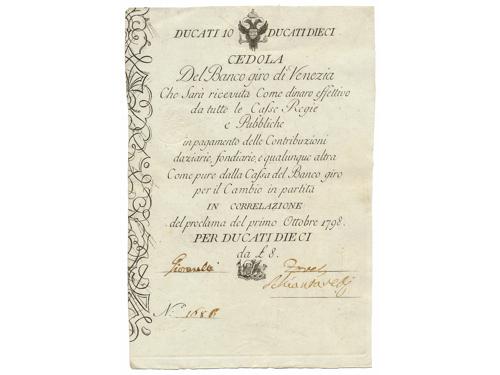 DUCATI 10 DUCATI DIECI
CEDOLA
Del Banco giro di Venezia
Che Sarà ricevuta Come dinaro effettivo
da tutte le Casse Regie
e Pubbliche
in pagamento delle Contribuzioni
daziarie, fondiarie, e qualunque altra
Come pure dalla Cassa del Banco giro
per il Cambio in partità
IN CORRELAZIONE
del proclama del primo Ottobre 1798.
PER DUCATI DIECI
da £ 8.
Giovanelli
N.º 1686